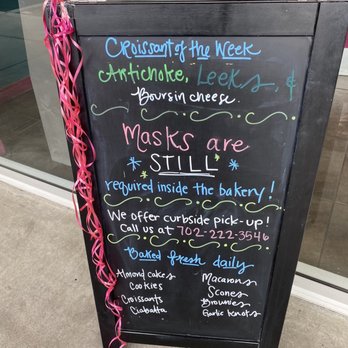 Croissant of the Week
Artichoke, Leeks, &
Boursin cheese.
Masks are
STILL
required inside the bakery!
We offer curbside pick-up!
Call us at 702-222-3546
Baked fresh daily
Almond cakes
Cookies
Croissants
Ciabatta
Macarons
Scones
Brownies
Garlic knots